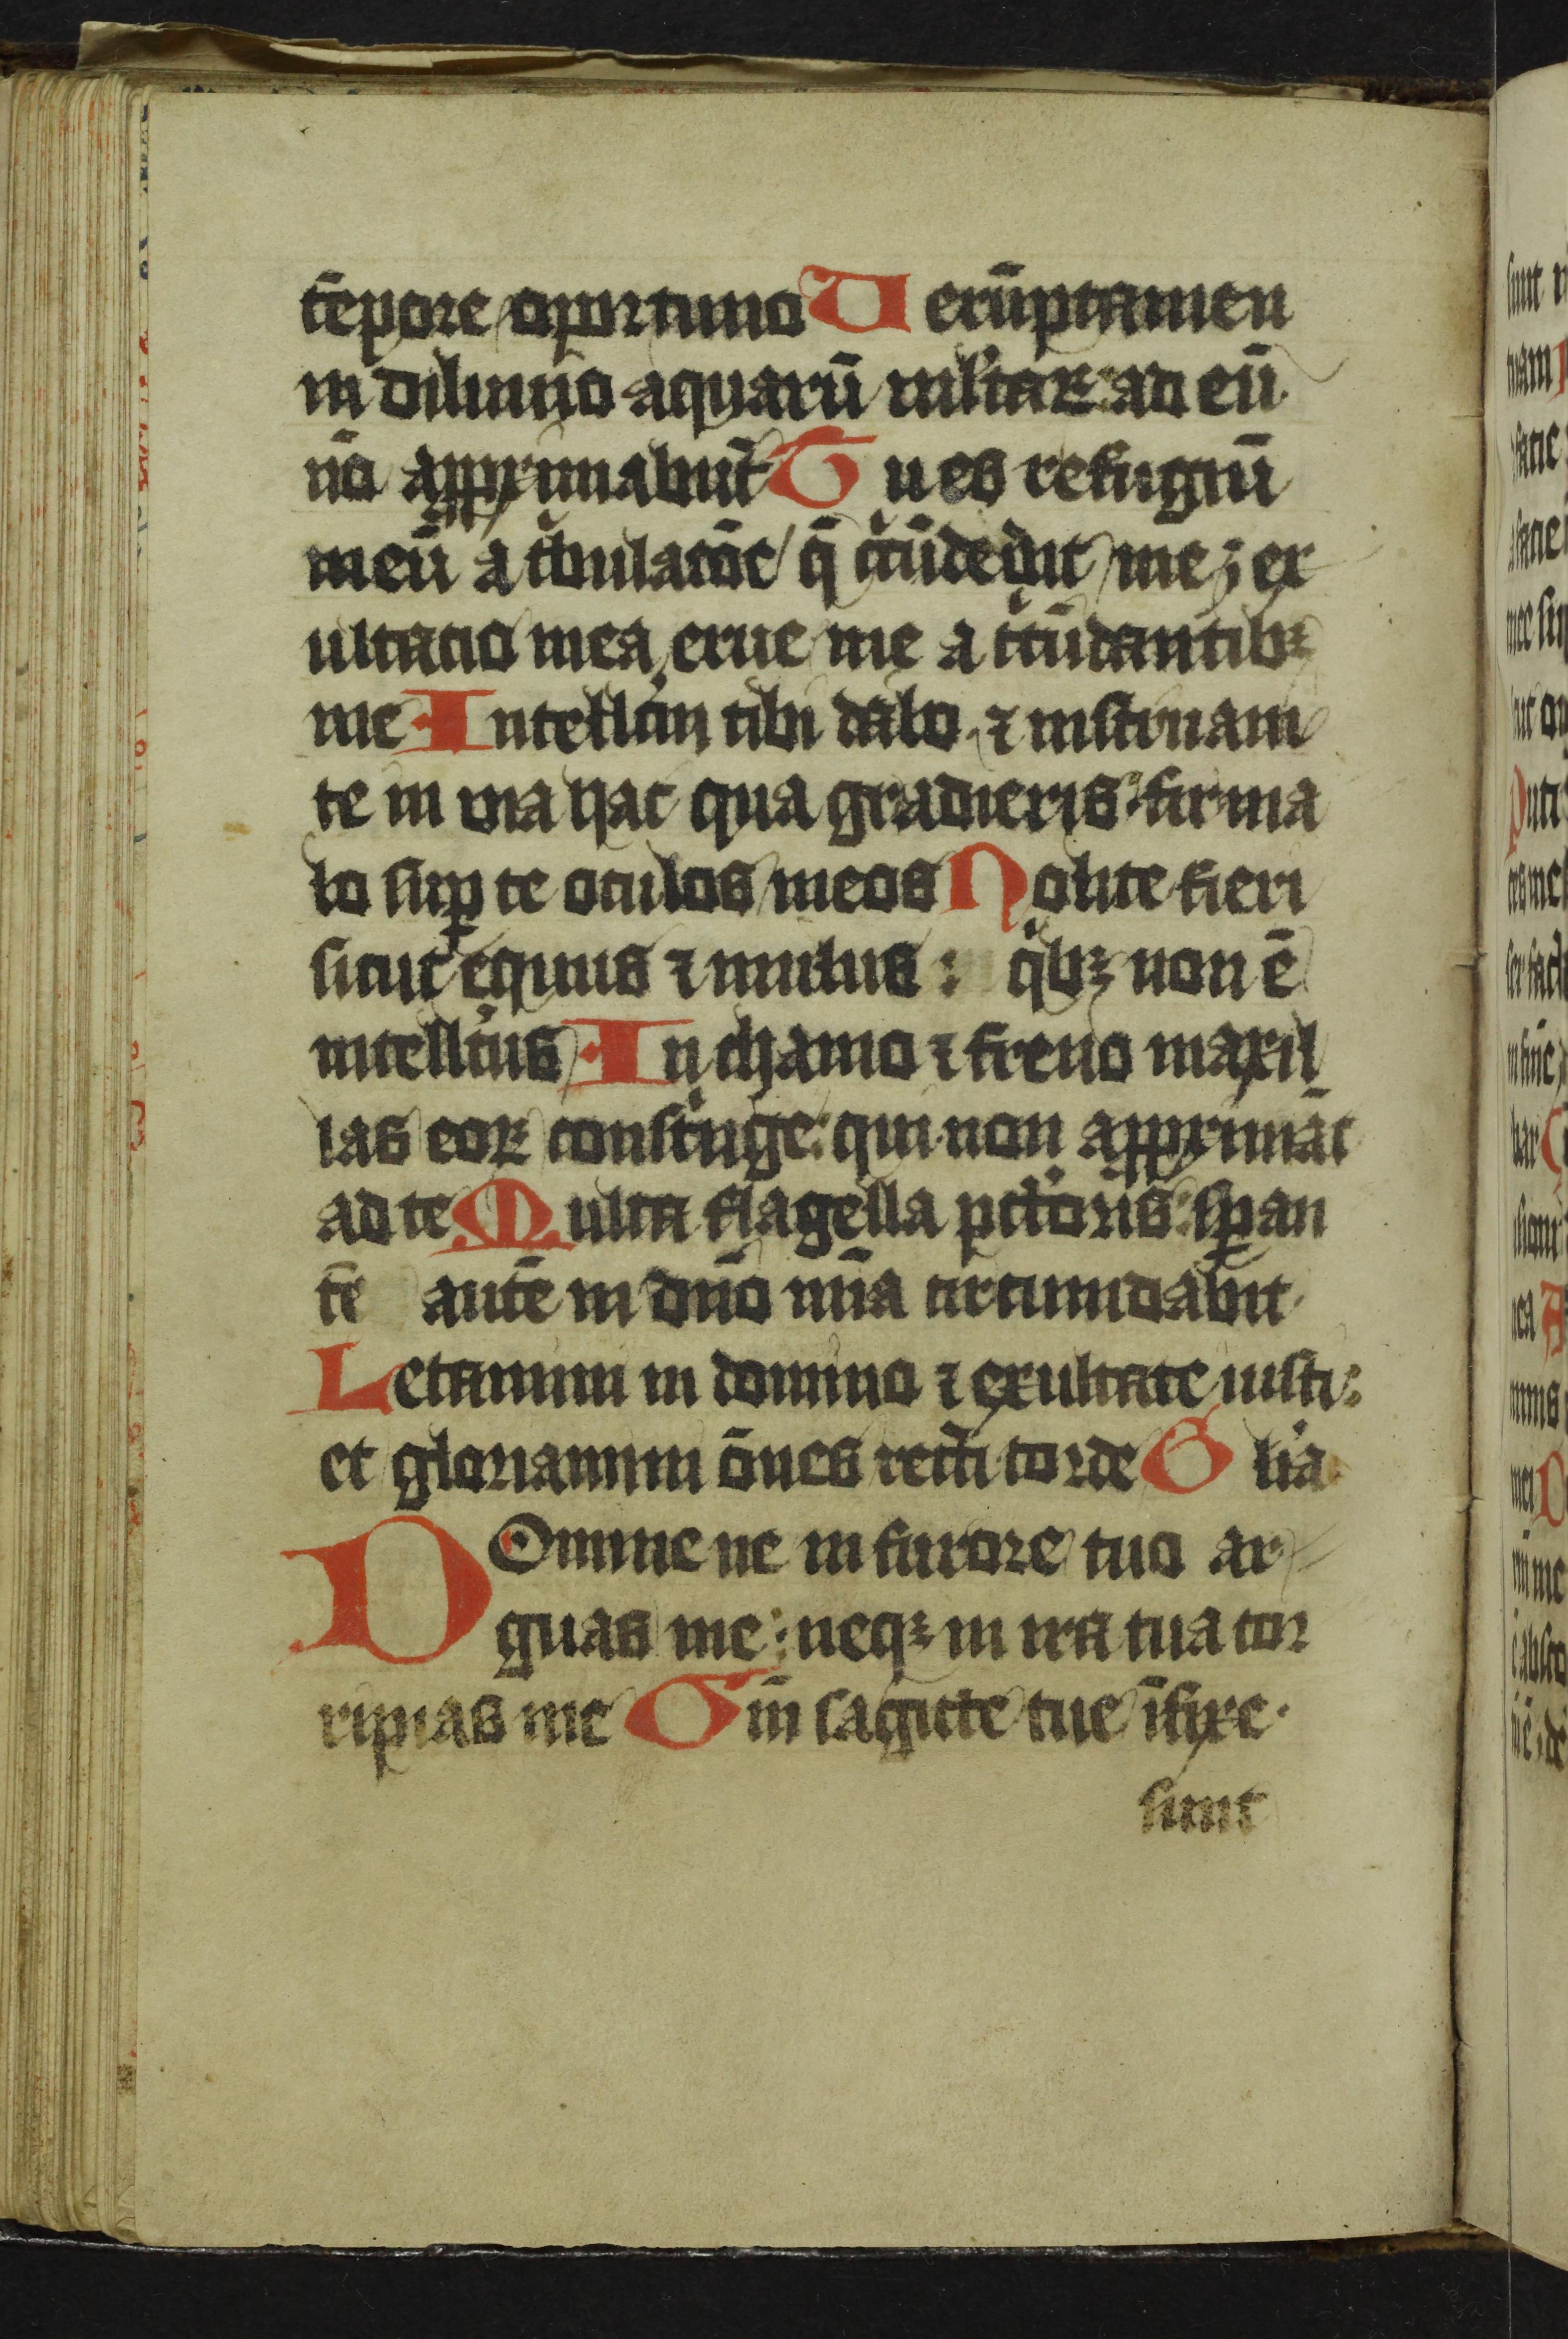 tēpore oportuno Uerūptamen
in diluuio aquarū mltaꝝ: ad eū
nō approximabūt Tu es refugiū
meū a tͥbulatōe q̄ cͥcūdedit me; ex
ultatio mea, erue me a cͥcūdantibꝫ
me Intellc̄m tibi dabo ⁊ instruam
te in uia hac qua gradieris: firma
bo suꝑ te oculos meos Nolite fieri
sicut equus ⁊ mulus: qͥbꝫ non ē
intellc̄us In chamo ⁊ freno maxil
las eoꝝ constͥnge: qui non approximāt
ad te Multa flagella pctōris: sꝑan
tē autē in dn̄o mīa circumdabit
Letamini in domino ⁊ exultate iusti:
et gloriamini ōnes recti corde Glīa
DOmine ne in furore tuo ar
guas me: neqꝫ in ira tua cor
ripias me Qm̄ sagitte tue īfixe
sunt